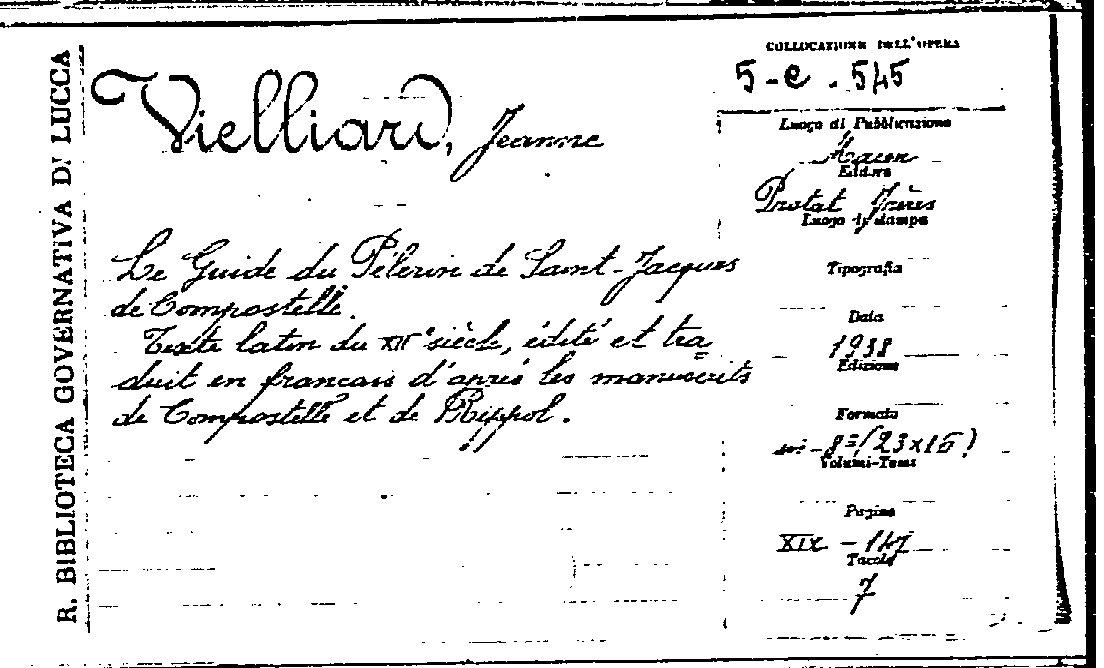 R. BIBLIOTECA GOVERNATIVA DI LUCCA
Vielliard, Jeanne
Le Guide du Pélerin de Saint-Jacques
de Compostelle.
Texte latin du XIIe siècle, édité et tra=
duit en francais d'après les manuscrits
de Compostelle et de Rippol.
COLLOCAZIONE DELL'OPERA
5-e. 545
Luogo di Pubblicazione
Macon
Editore
Protat Frères
Luogo di stampa
Tipografia
Data
1938
Edizione
Formato
in-8=(23x15)
Volumi-Tomi
Pagine
XIX - 147
Tavole
7